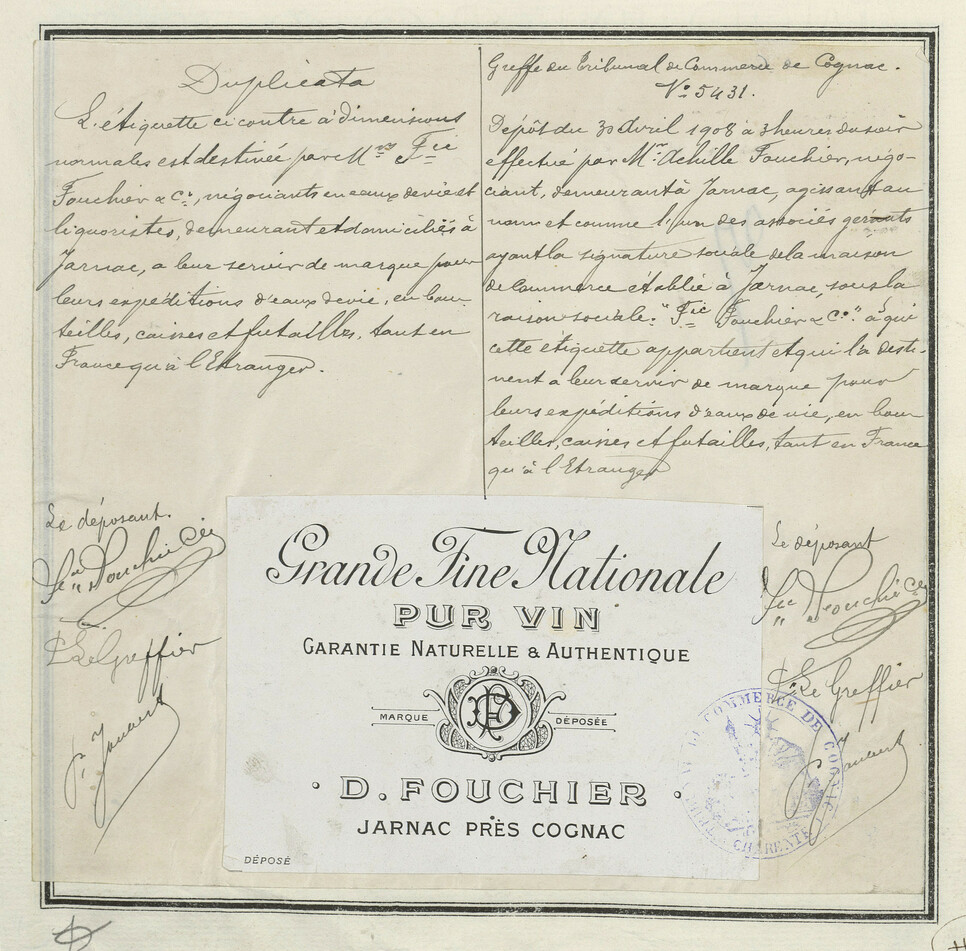 Duplicata
L'étiquette ci contre à dimensions
normales est destinée par Mrs Fcie
Fouchier & Cie, négociants en eaux de vie et
liquoristes, demeurant et domiciliés à
Jarnac, a leur servir de marque pour
leurs expéditions d'eaux de vie, en bou-
teilles, caisses et futailles, tant en
France qu'à l'Etranger.
Le déposant.
Fouchier & Cie
P. Le Greffier
Greffe du Tribunal de Commerce de Cognac.
No 5431.
Dépôt du 30 Avril 1908 à 3 heures du soir
effectué par Mr. Achille Fouchier, négo-
ciant, demeurant à Jarnac, agissant au
nom et comme l'un des associés gérants
ayant la signature sociale de la maison
de Commerce établie à Jarnac, sous la
raison sociale "Fcie Fouchier & Co." à qui
cette étiquette appartient et qui la desti-
nent a leur servir de marque pour
leurs expéditions d'eaux de vie, en bou-
teilles, caisses et futailles, tant en France
qu'à l'Etranger
Le déposant
Fouchier & Cie
P. Le Greffier
Grande Fine Nationale
PUR VIN
GARANTIE NATURELLE & AUTHENTIQUE
MARQUE DÉPOSÉE
· D. FOUCHIER ·
JARNAC PRÈS COGNAC
DÉPOSÉ
COMMERCE DE COGNAC
CHARENTE